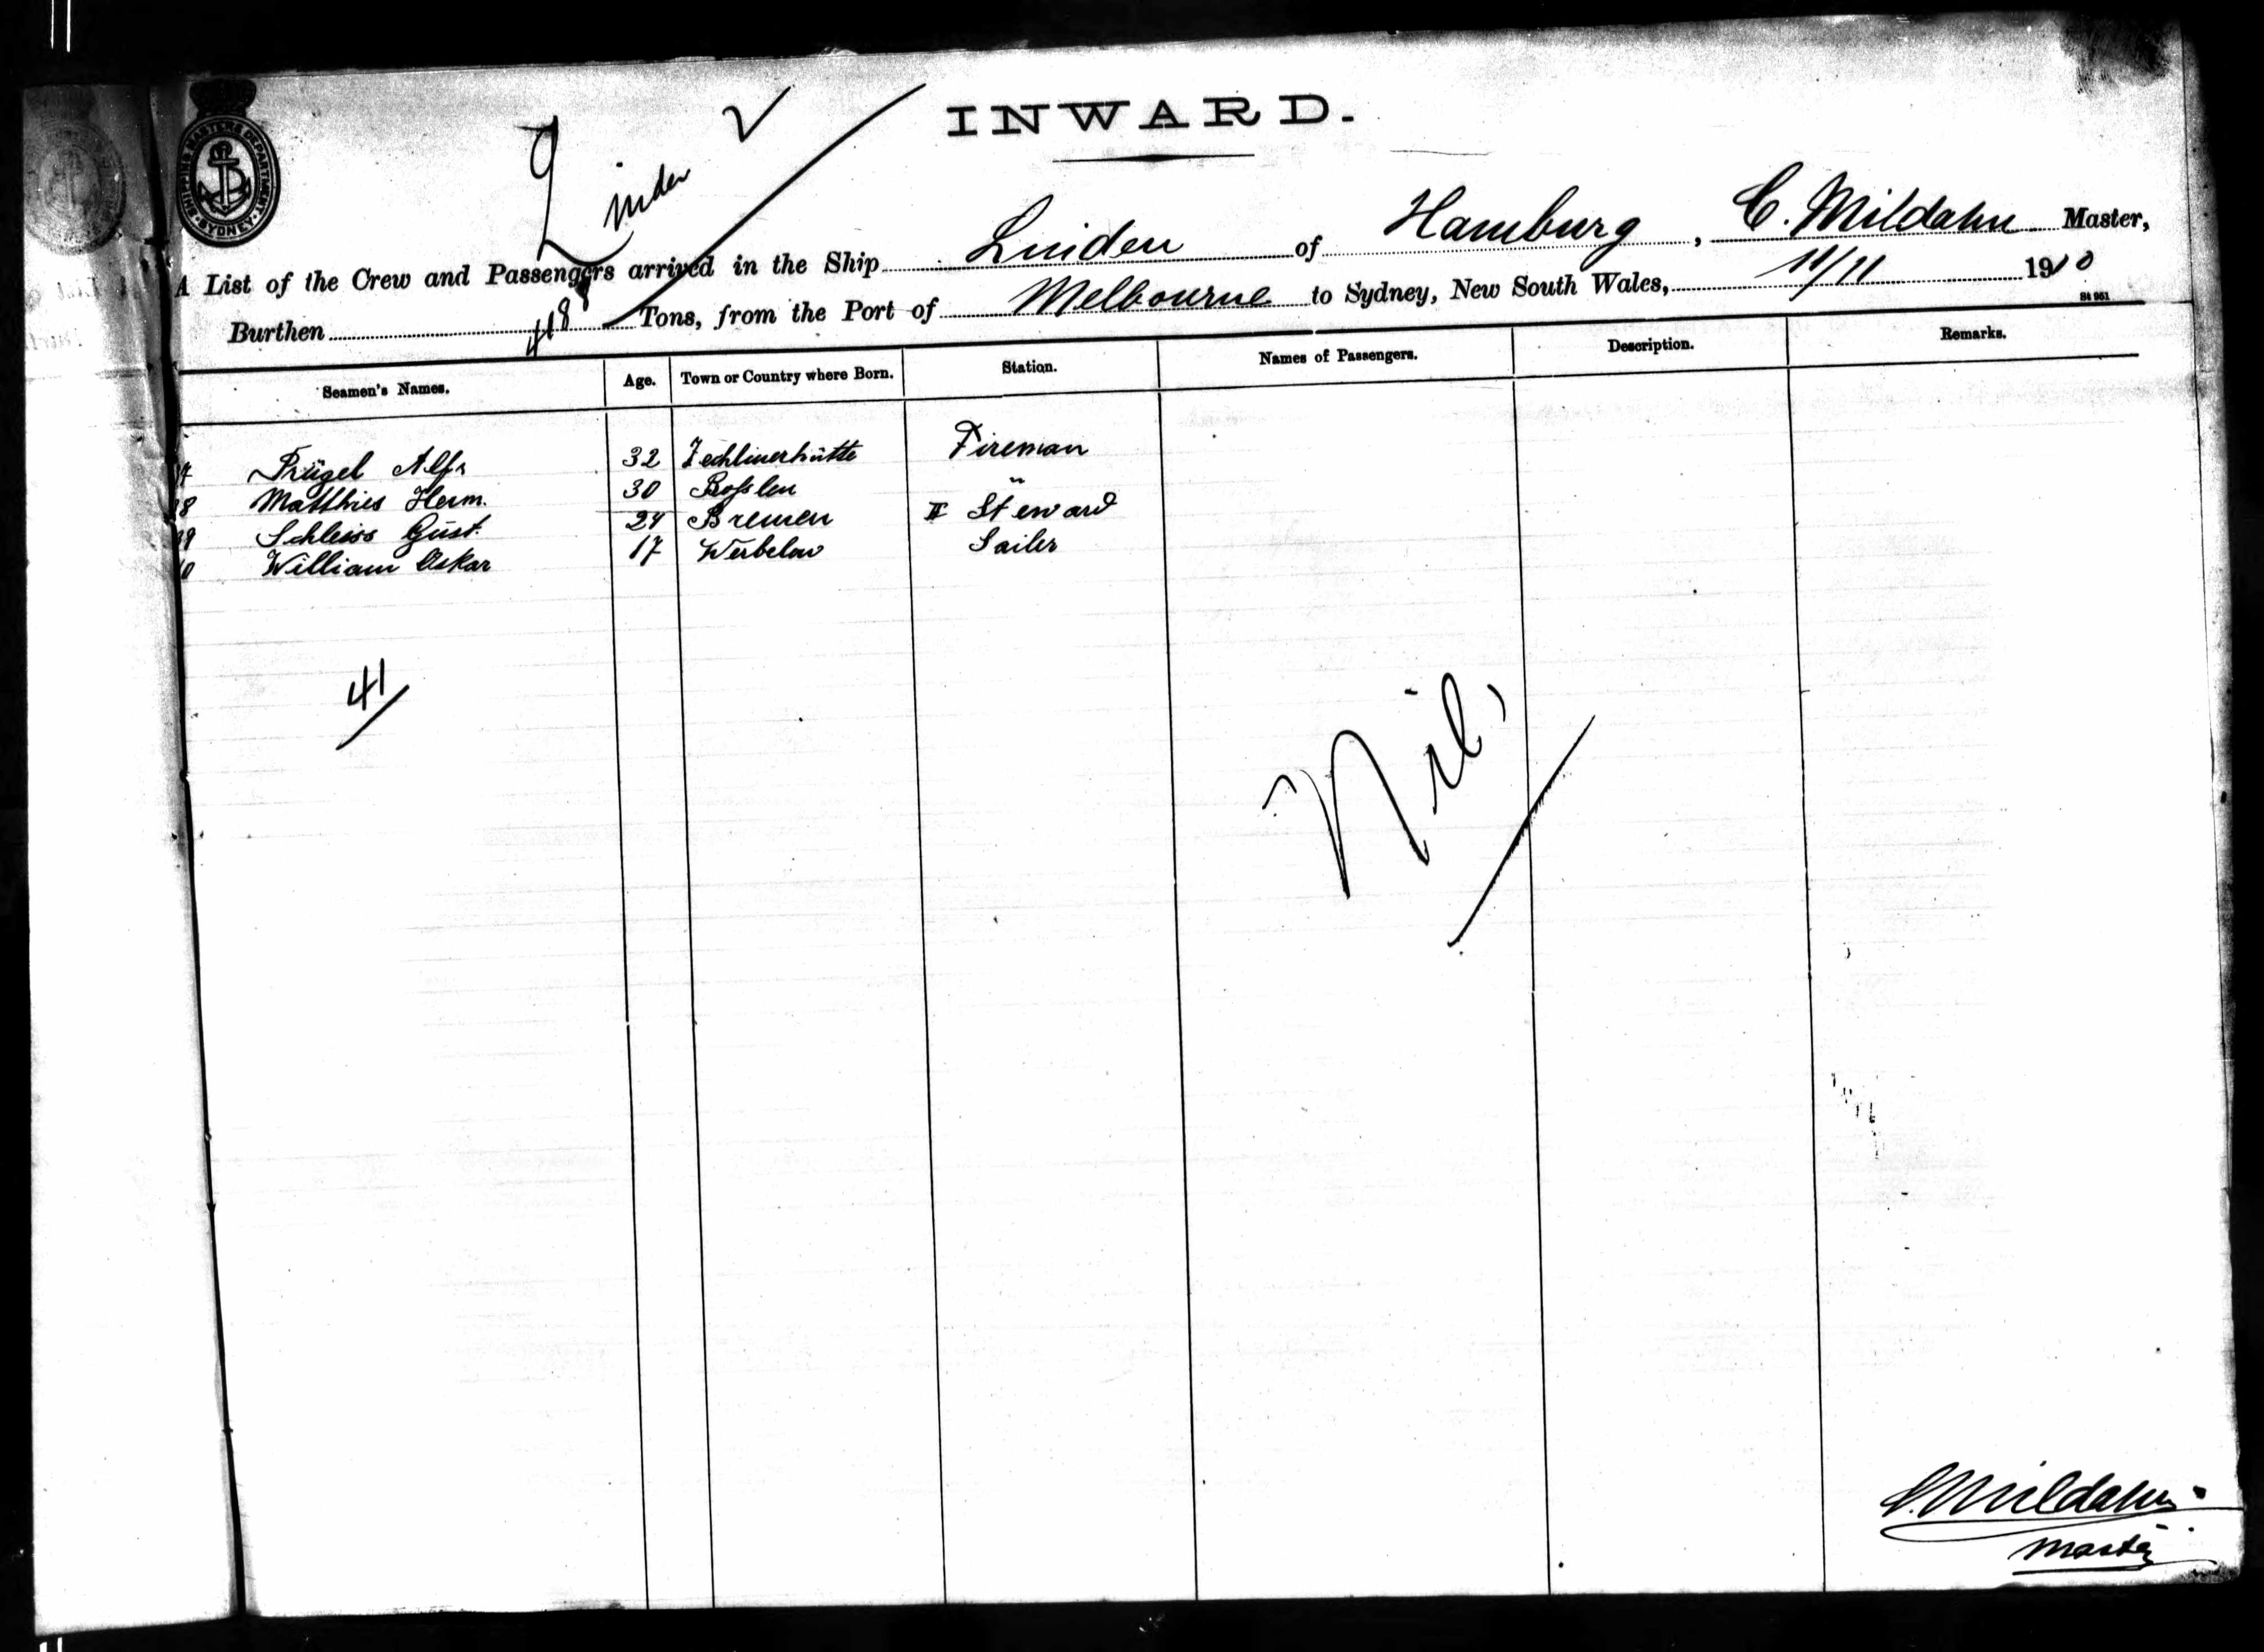 INWARD.
SHIPPING MASTERS DEPARTMENT SYDNEY
Linden
A List of the Crew and Passengers arrived in the Ship Linden of Hamburg, C. Mildahn Master,
Burthen Tons, from the Port of Melbourne to Sydney, New South Wales, 11/11 1910
St 951
Seamen's Names. Age. Town or Country where Born. Station. Names of Passengers. Description. Remarks.
37 Prügel Alfr 32 Zechlinerhütte Fireman
38 Matthies Herm. 30 "
39 Schleiss Gust. 24 Bremen II Steward
40 William Oskar 17 Werbelow Sailor
41
Nil
C. Mildahn
Master